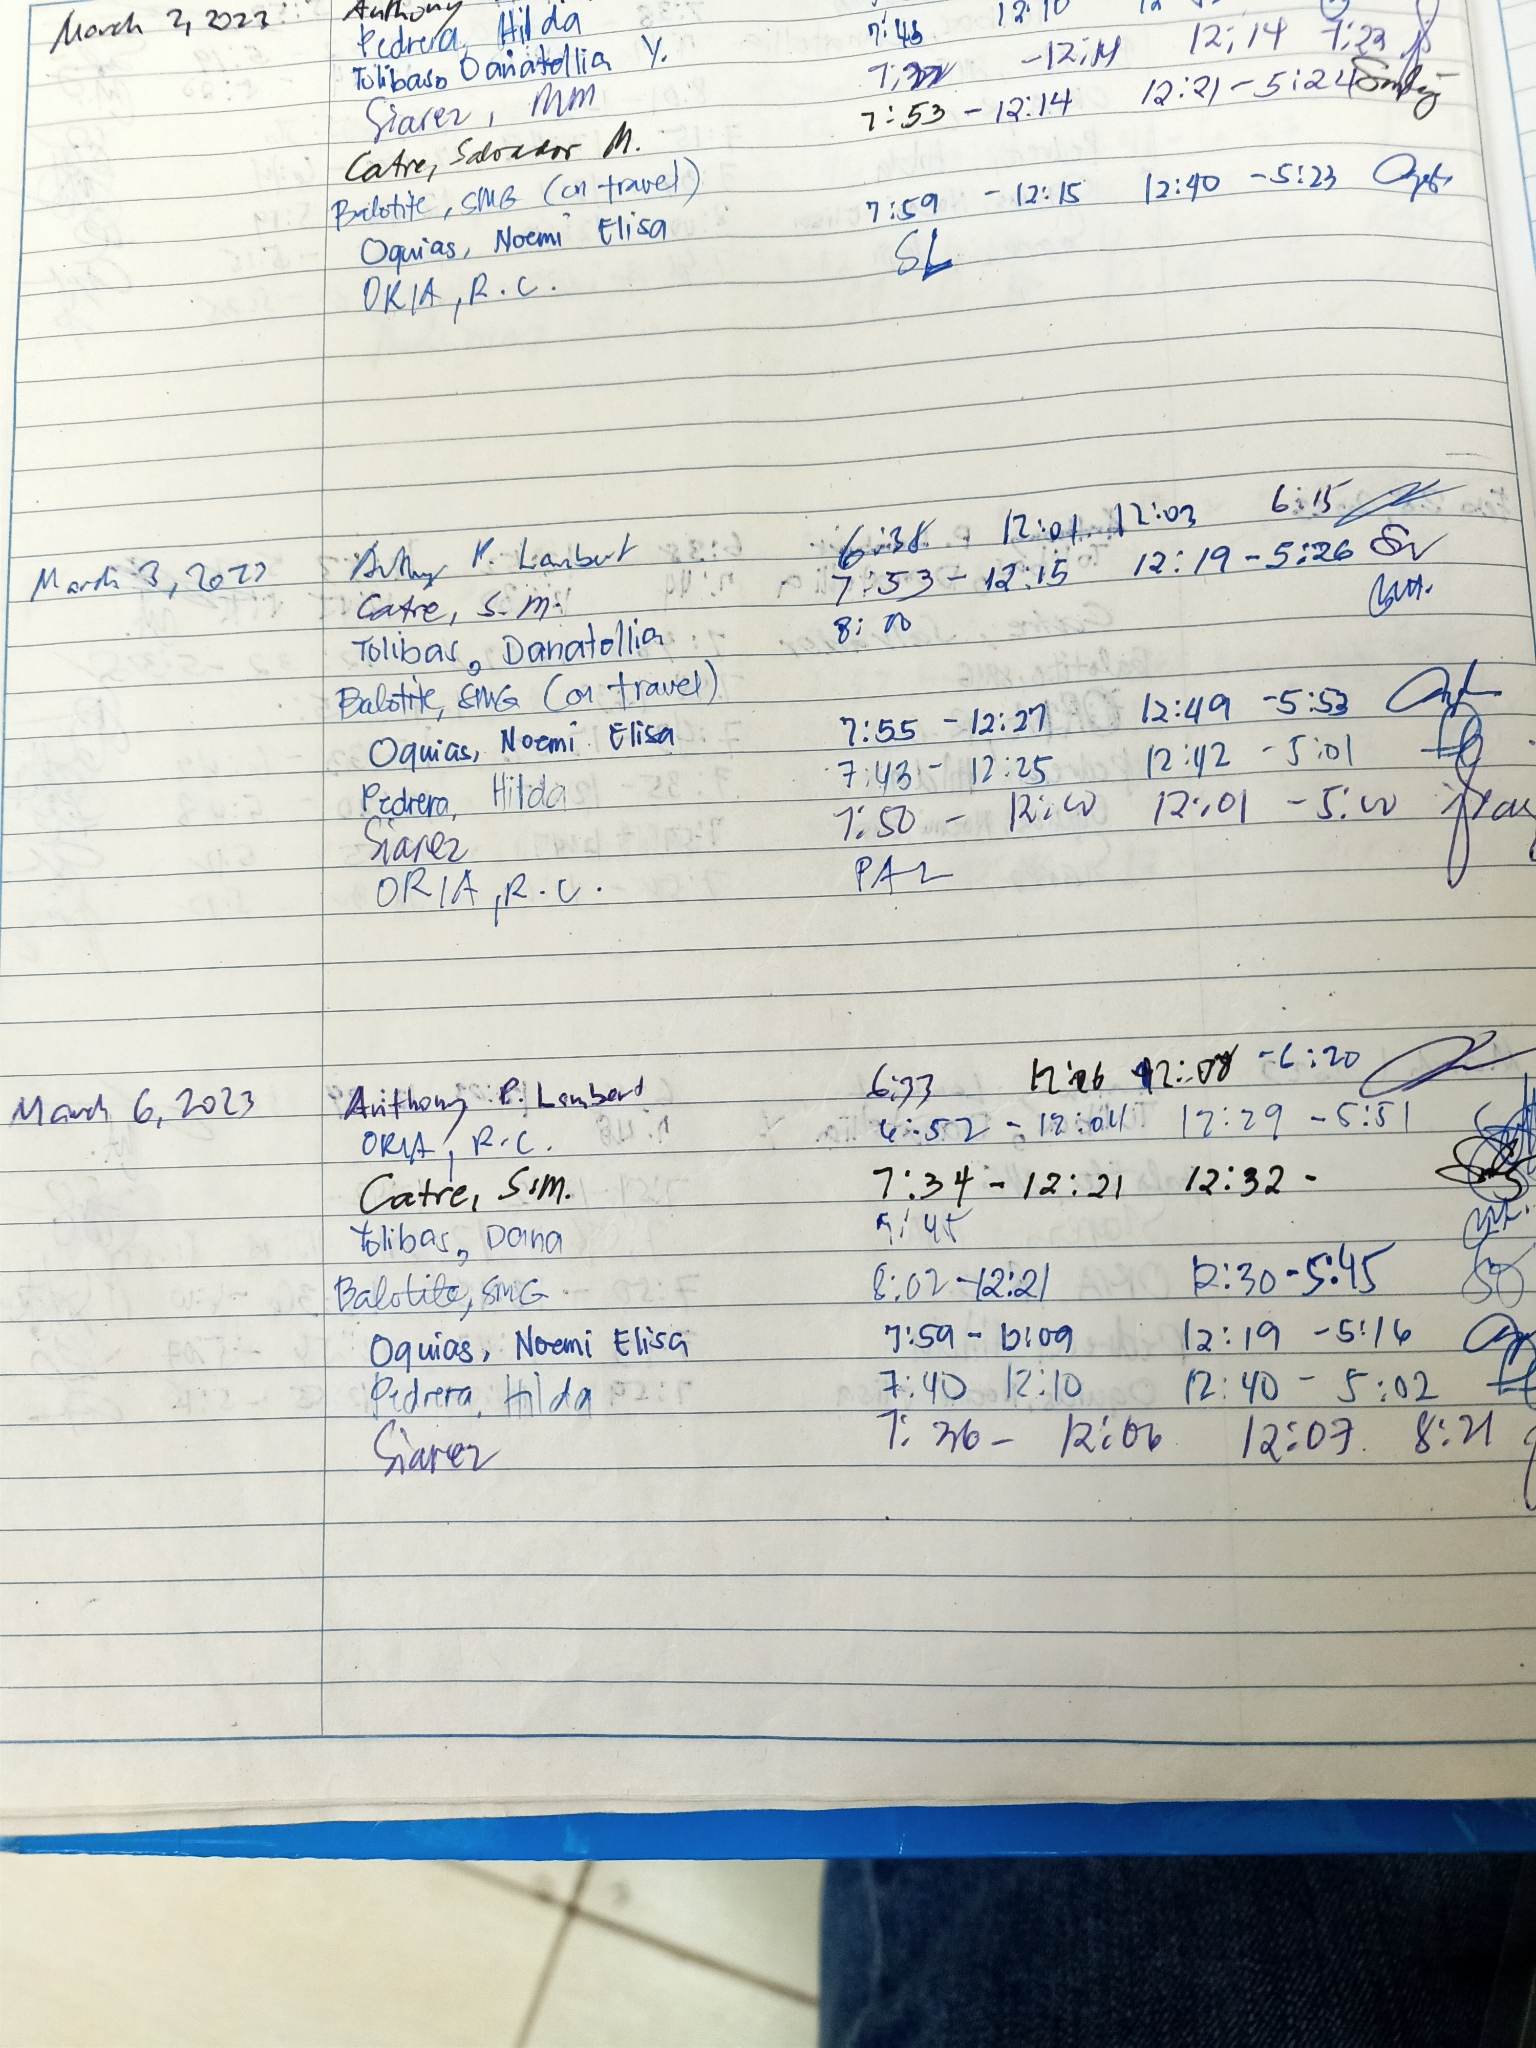 March 2, 2023 Anthony 12:10
Pedrera, Hilda 7:43
Tolibas, Danatollia Y. 12:14 7:23
Siarez, MM 7:53 - 12:14 12:21 - 5:24
Catre, Salvador M.
Balotite, SMG (on travel) 7:59 - 12:15 12:40 - 5:23
Oquias, Noemi Elisa SL
ORIA, R.C.
March 3, 2023 Anthony P. Lambert 6:38 12:01 12:03 6:15
Catre, S.M. 7:53 - 12:15 12:19 - 5:26
Tolibas, Danatollia 8:00
Balotite, SMG (on travel)
Oquias, Noemi Elisa 7:55 - 12:27 12:49 - 5:53
Pedrera, Hilda 7:43 - 12:25 12:42 - 5:01
Siarez 7:50 - 12:00 12:01 - 5:00
ORIA, R.C. PAL
March 6, 2023 Anthony P. Lambert 6:33 12:06 12:08 - 6:20
ORIA, R.C. 6:52 - 12:04 12:29 - 5:51
Catre, S.M. 7:34 - 12:21 12:32 -
Tolibas, Dana 7:45
Balotite, SMG 8:02 - 12:21 12:30 - 5:45
Oquias, Noemi Elisa 7:59 - 12:09 12:19 - 5:16
Pedrera, Hilda 7:40 12:10 12:40 - 5:02
Siarez 7:36 - 12:06 12:07 8:21